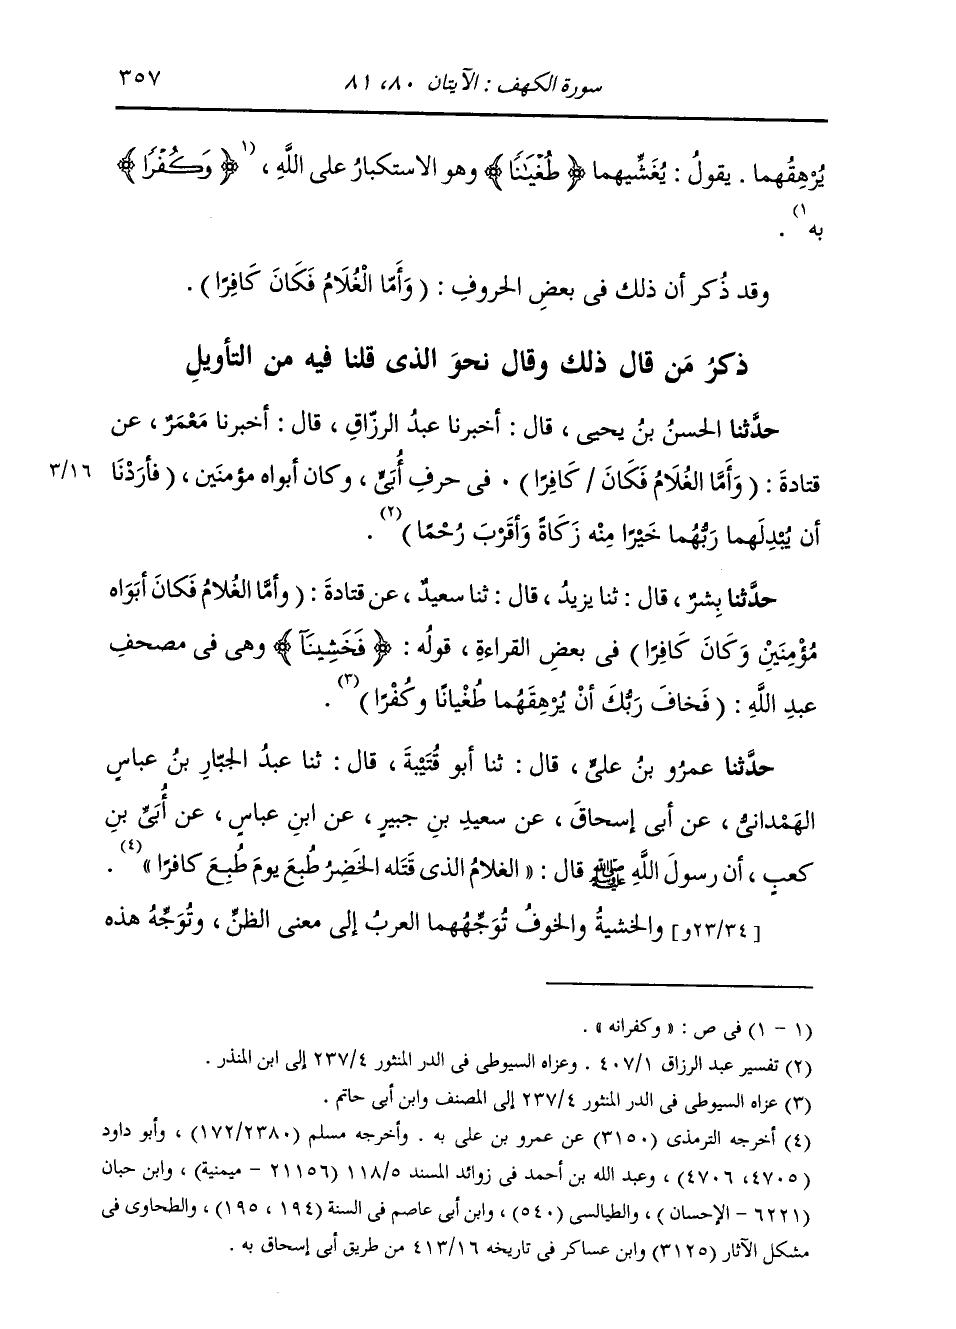 سورة الكهف : الآيتان ٨٠، ٨١ ٣٥٧
يُرْهِقُهما . يقولُ : يُغَشِّيهما ﴿ طُغْيَٰنًا ﴾ وهو الاستكبارُ على اللَّهِ ، (١﴿ وَكُفْرًا ﴾
به١) .
وقد ذُكر أن ذلك فى بعضِ الحروفِ : ( وَأَمَّا الْغُلَامُ فَكَانَ كَافِرًا ) .
ذكرُ مَن قال ذلك وقال نحوَ الذى قلنا فيه من التأويلِ
حدَّثنا الحسنُ بنُ يحيى ، قال : أخبرنا عبدُ الرزّاقِ ، قال : أخبرنا مَعْمَرٌ ، عن
قتادةَ : ( وَأَمَّا الغُلَامُ فَكَانَ / كَافِرًا ) . فى حرفِ أُبَيٍّ ، وكان أبواه مؤمنَين ، ( فأرَدْنَا ٣/١٦
أن يُبْدِلَهما رَبُّهُما خَيْرًا مِنْه زَكَاةً وَأَقْرَبَ رُحْمًا )(٢) .
حدَّثنا بِشرٌ ، قال : ثنا يزيدُ ، قال : ثنا سعيدٌ ، عن قتادةَ : ( وأمَّا الغُلامُ فَكانَ أبَوَاه
مُؤْمِنَيْنِ وَكَانَ كَافِرًا ) فى بعضِ القراءةِ ، قولُه : ﴿ فَخَشِينَآ ﴾ وهى فى مصحفِ
عبدِ اللَّهِ : ( فَخافَ رَبُّكَ أنْ يُرْهِقَهُما طُغْيانًا وكُفْرًا )(٣) .
حدَّثنا عمرُو بنُ علىٍّ ، قال : ثنا أبو قُتَيْبةَ ، قال : ثنا عبدُ الجبّارِ بنُ عباسٍ
الهَمْدانىُّ ، عن أبى إسحاقَ ، عن سعيدِ بنِ جبيرٍ ، عن ابنِ عباسٍ ، عن أُبَيِّ بنِ
كعبٍ ، أن رسولَ اللَّهِ ﷺ قال : « الغلامُ الذى قَتَله الخَضِرُ طُبِعَ يومَ طُبِعَ كافرًا »(٤) .
[ ٢٣/٣٤و ] والخشيةُ والخوفُ تُوَجِّهُهما العربُ إلى معنى الظنِّ ، وتُوَجِّهُ هذه
(١ - ١) فى ص : « وكفرانه » .
(٢) تفسير عبد الرزاق ٤٠٧/١ . وعزاه السيوطى فى الدر المنثور ٢٣٧/٤ إلى ابن المنذر .
(٣) عزاه السيوطى فى الدر المنثور ٢٣٧/٤ إلى المصنف وابن أبى حاتم .
(٤) أخرجه الترمذى (٣١٥٠) عن عمرو بن على به . وأخرجه مسلم (١٧٢/٢٣٨٠) ، وأبو داود
(٤٧٠٥، ٤٧٠٦) ، وعبد الله بن أحمد فى زوائد المسند ١١٨/٥ (٢١١٥٦ - ميمنية) ، وابن حبان
(٦٢٢١ - الإحسان ) ، والطيالسى (٥٤٠) ، وابن أبى عاصم فى السنة (١٩٤ ، ١٩٥) ، والطحاوى فى
مشكل الآثار (٣١٢٥) وابن عساكر فى تاريخه ٤١٣/١٦ من طريق أبى إسحاق به .